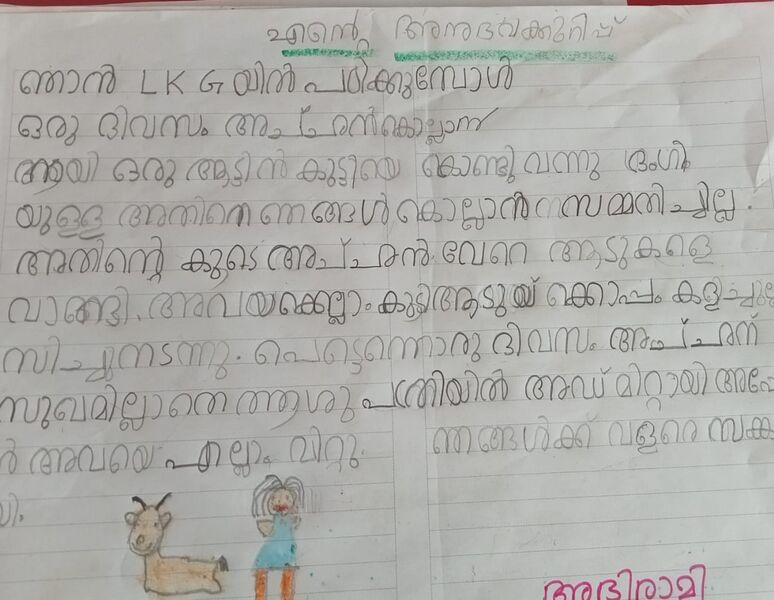 എന്റെ അനുഭവക്കുറിപ്പ്
ഞാൻ LKG യിൽ പഠിക്കുമ്പോൾ
ഒരു ദിവസം അച്ഛൻ കൊല്ലാന
ആയി ഒരു ആട്ടിൻ കുട്ടിയെ കൊണ്ടുവന്നു ഭംഗി
യുള്ള അതിനെ ഞങ്ങൾ കൊല്ലാൻ സമ്മതിച്ചില്ല.
അതിന്റെ കൂടെ അച്ഛൻ വേറെ ആടുകളെ
വാങ്ങി. അവയക്കെല്ലാം കുട്ടിആടുയ് ക്കൊപ്പം കളിച്ചുല്ല
സിച്ചുനടന്നു. പെട്ടെന്നൊരു ദിവസം അച്ഛന്
സുഖമില്ലാതെ ആശുപത്രിയിൽ അഡ്മിറ്റായി അപ്പോ
ൾ അവയെ എല്ലാം വിറ്റു. ഞങ്ങൾക്ക് വളരെ സങ്ക
യി.
അഭിരാമി